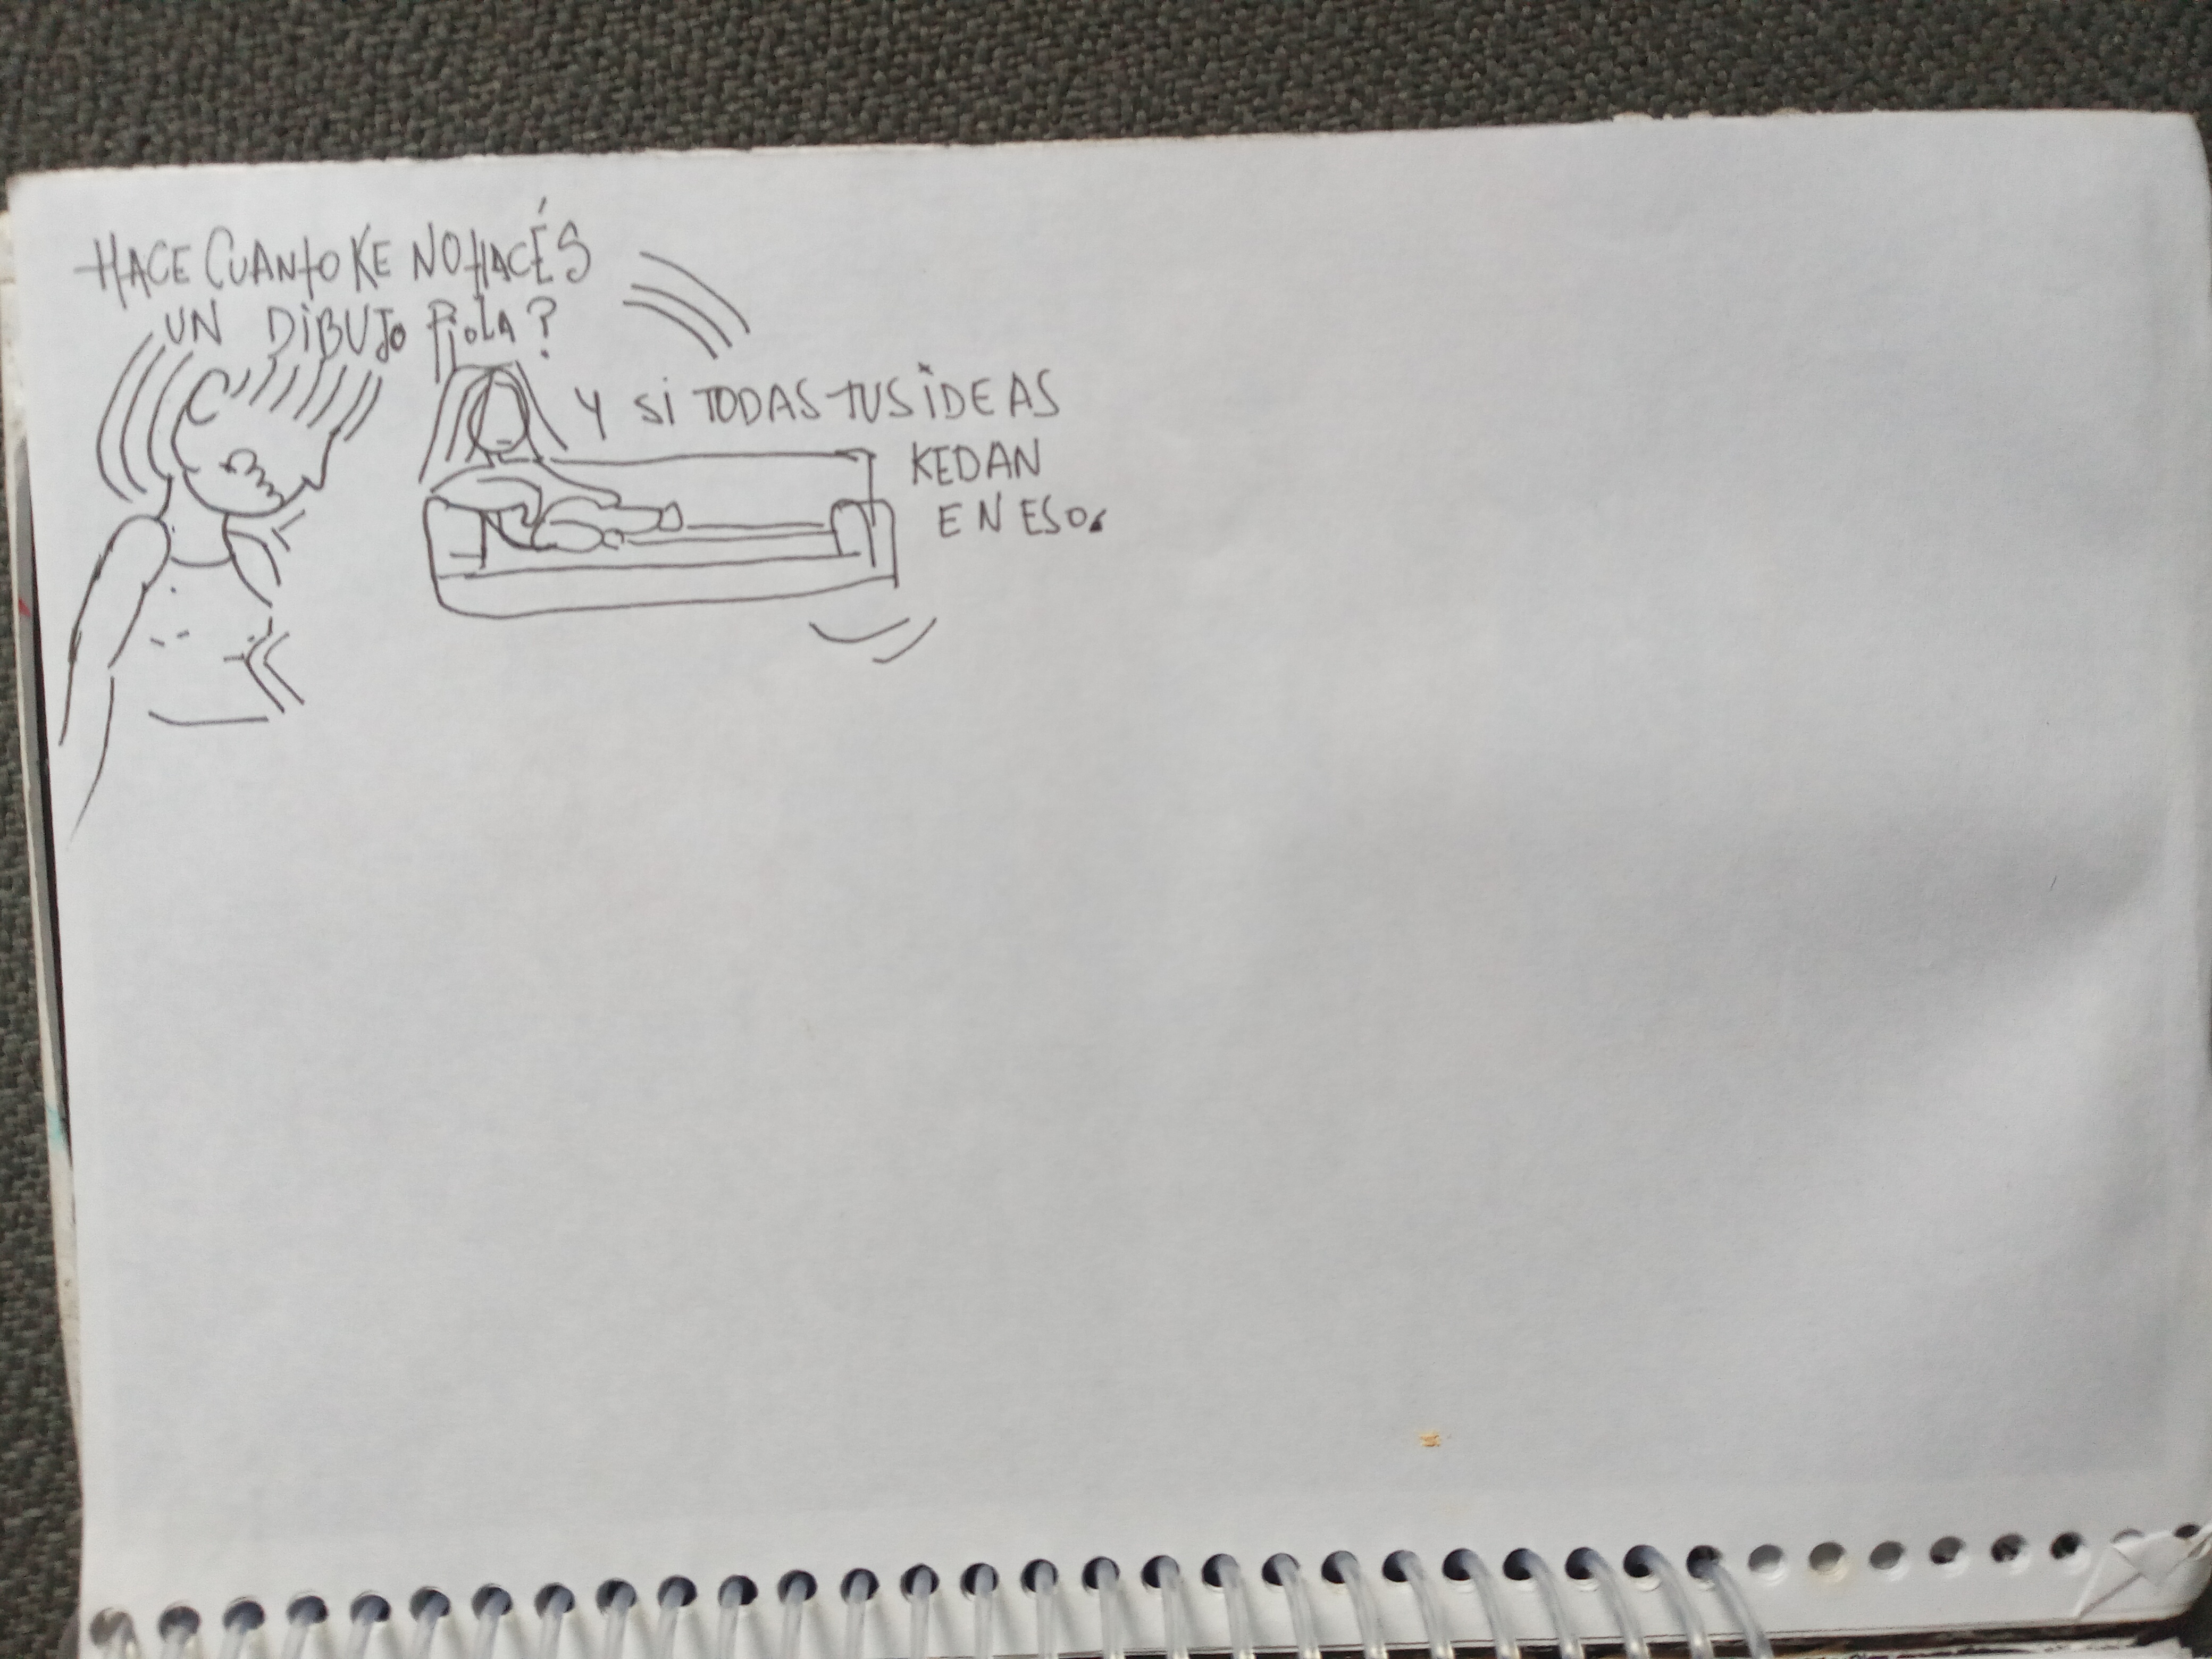 HACE CUANTO KE NO HACÉS
UN DIBUJO FIOLA?
Y SI TODAS TUS IDEAS
KEDAN
EN ESO.